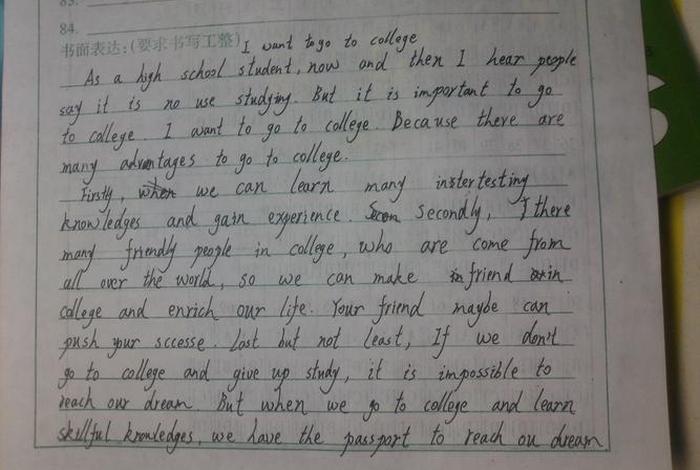 84.
书面表达:(要求书写工整) I want to go to college
As a high school student, now and then I hear people
say it is no use studying. But it is important to go
to college. I want to go to college. Because there are
many advantages to go to college.
Firstly, when we can learn many instertesting
knowledges and gain experience. Secon Secondly, There
many friendly people in college, who are come from
all over the world, so we can make friend in
college and enrich our life. Your friend maybe can
push your sccesse. Last but not least, If we don't
go to college and give up study, it is impossible to
reach our dream. But when we go to college and learn
skillful knowledges, we have the passport to reach ou dream